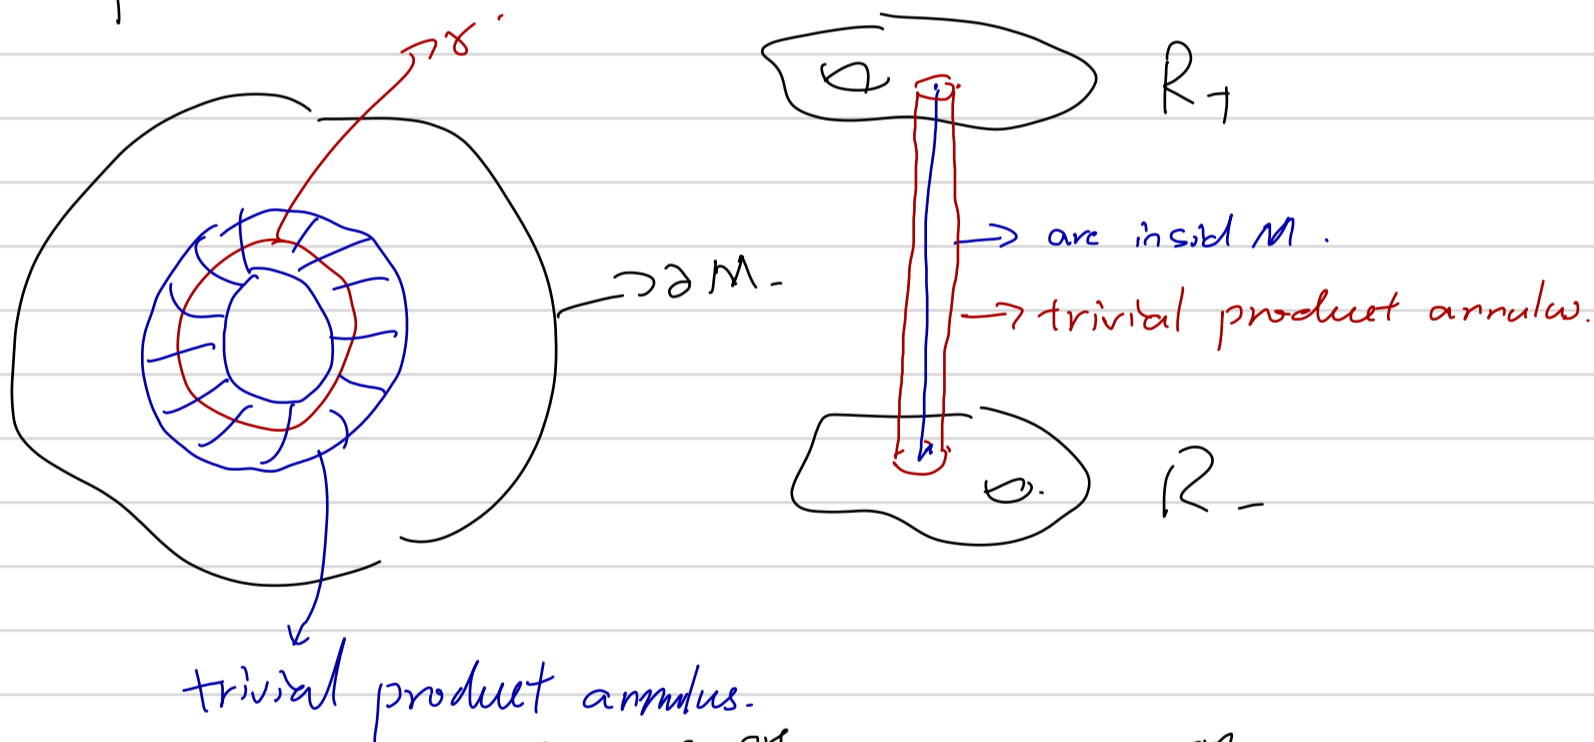 γ.
R+
∂M.
arc insid M.
trivial product annulus.
R-
trivial product annulus.